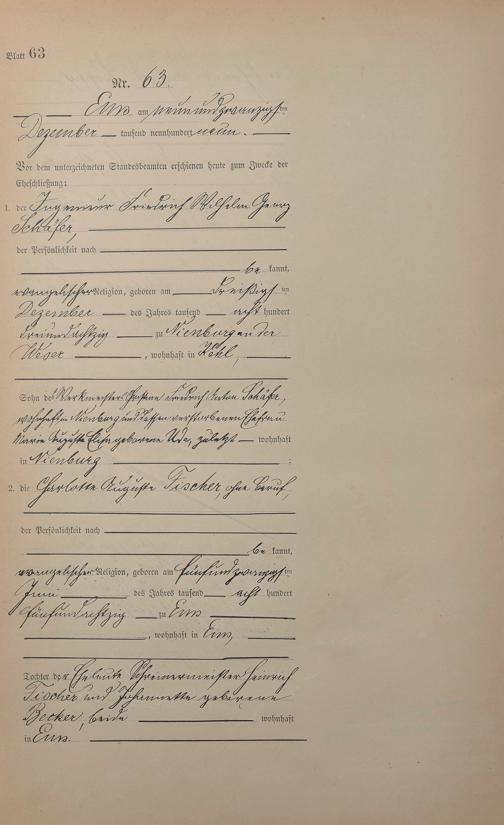 Blatt 63
Nr. 63.
Ems am neunundzwanzigsten
Dezember tausend neunhundert neun.
Vor dem unterzeichneten Standesbeamten erschienen heute zum Zwecke der
Eheschließung:
1. der Ingenieur Friedrich Wilhelm Georg
Schäfer,
der Persönlichkeit nach
be kannt,
evangelischer Religion, geboren am dreißigsten
Dezember des Jahres tausend acht hundert
dreiundachtzig zu Nienburg an der
Weser, wohnhaft in Kehl,
Sohn des Werkmeisters Friedrich Anton Schäfer,
wohnhaft in Nienburg und dessen verstorbenen Ehefrau
Marie Auguste geborene Ude, zuletzt wohnhaft
in Nienburg ;
2. die Charlotte Auguste Fischer, ohne Beruf,
der Persönlichkeit nach
be kannt,
evangelischer Religion, geboren am fünfundzwanzigsten
Juni des Jahres tausend acht hundert
fünfundachtzig zu Ems
, wohnhaft in Ems,
Tochter der Eheleute Schreinermeister Heinrich
Fischer und Johannette geborene
Becker, beide wohnhaft
in Ems.